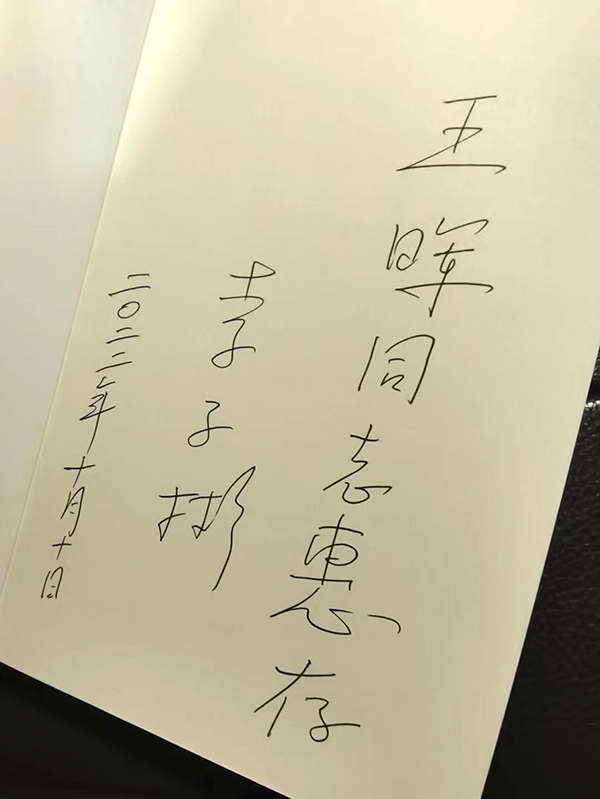 王晖同志惠存
李子彬
二〇二二年十月十日